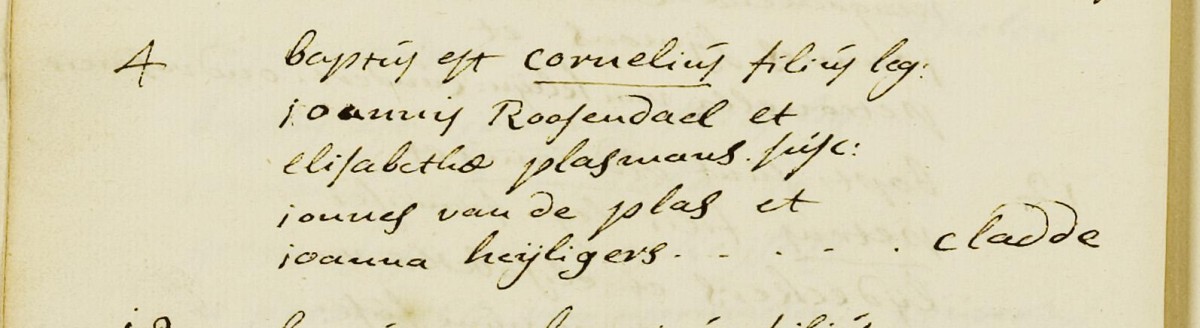 4 baptus est cornelius filius leg:
joannis Roosendael et
elisabethæ plasmans. susc:
joannes van de plas et
joanna heijligers. - . - . cladde